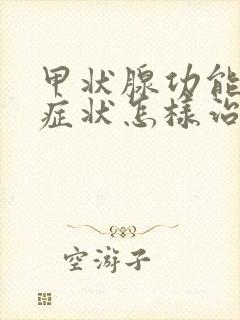 甲状腺功能
症状怎样治
空游子